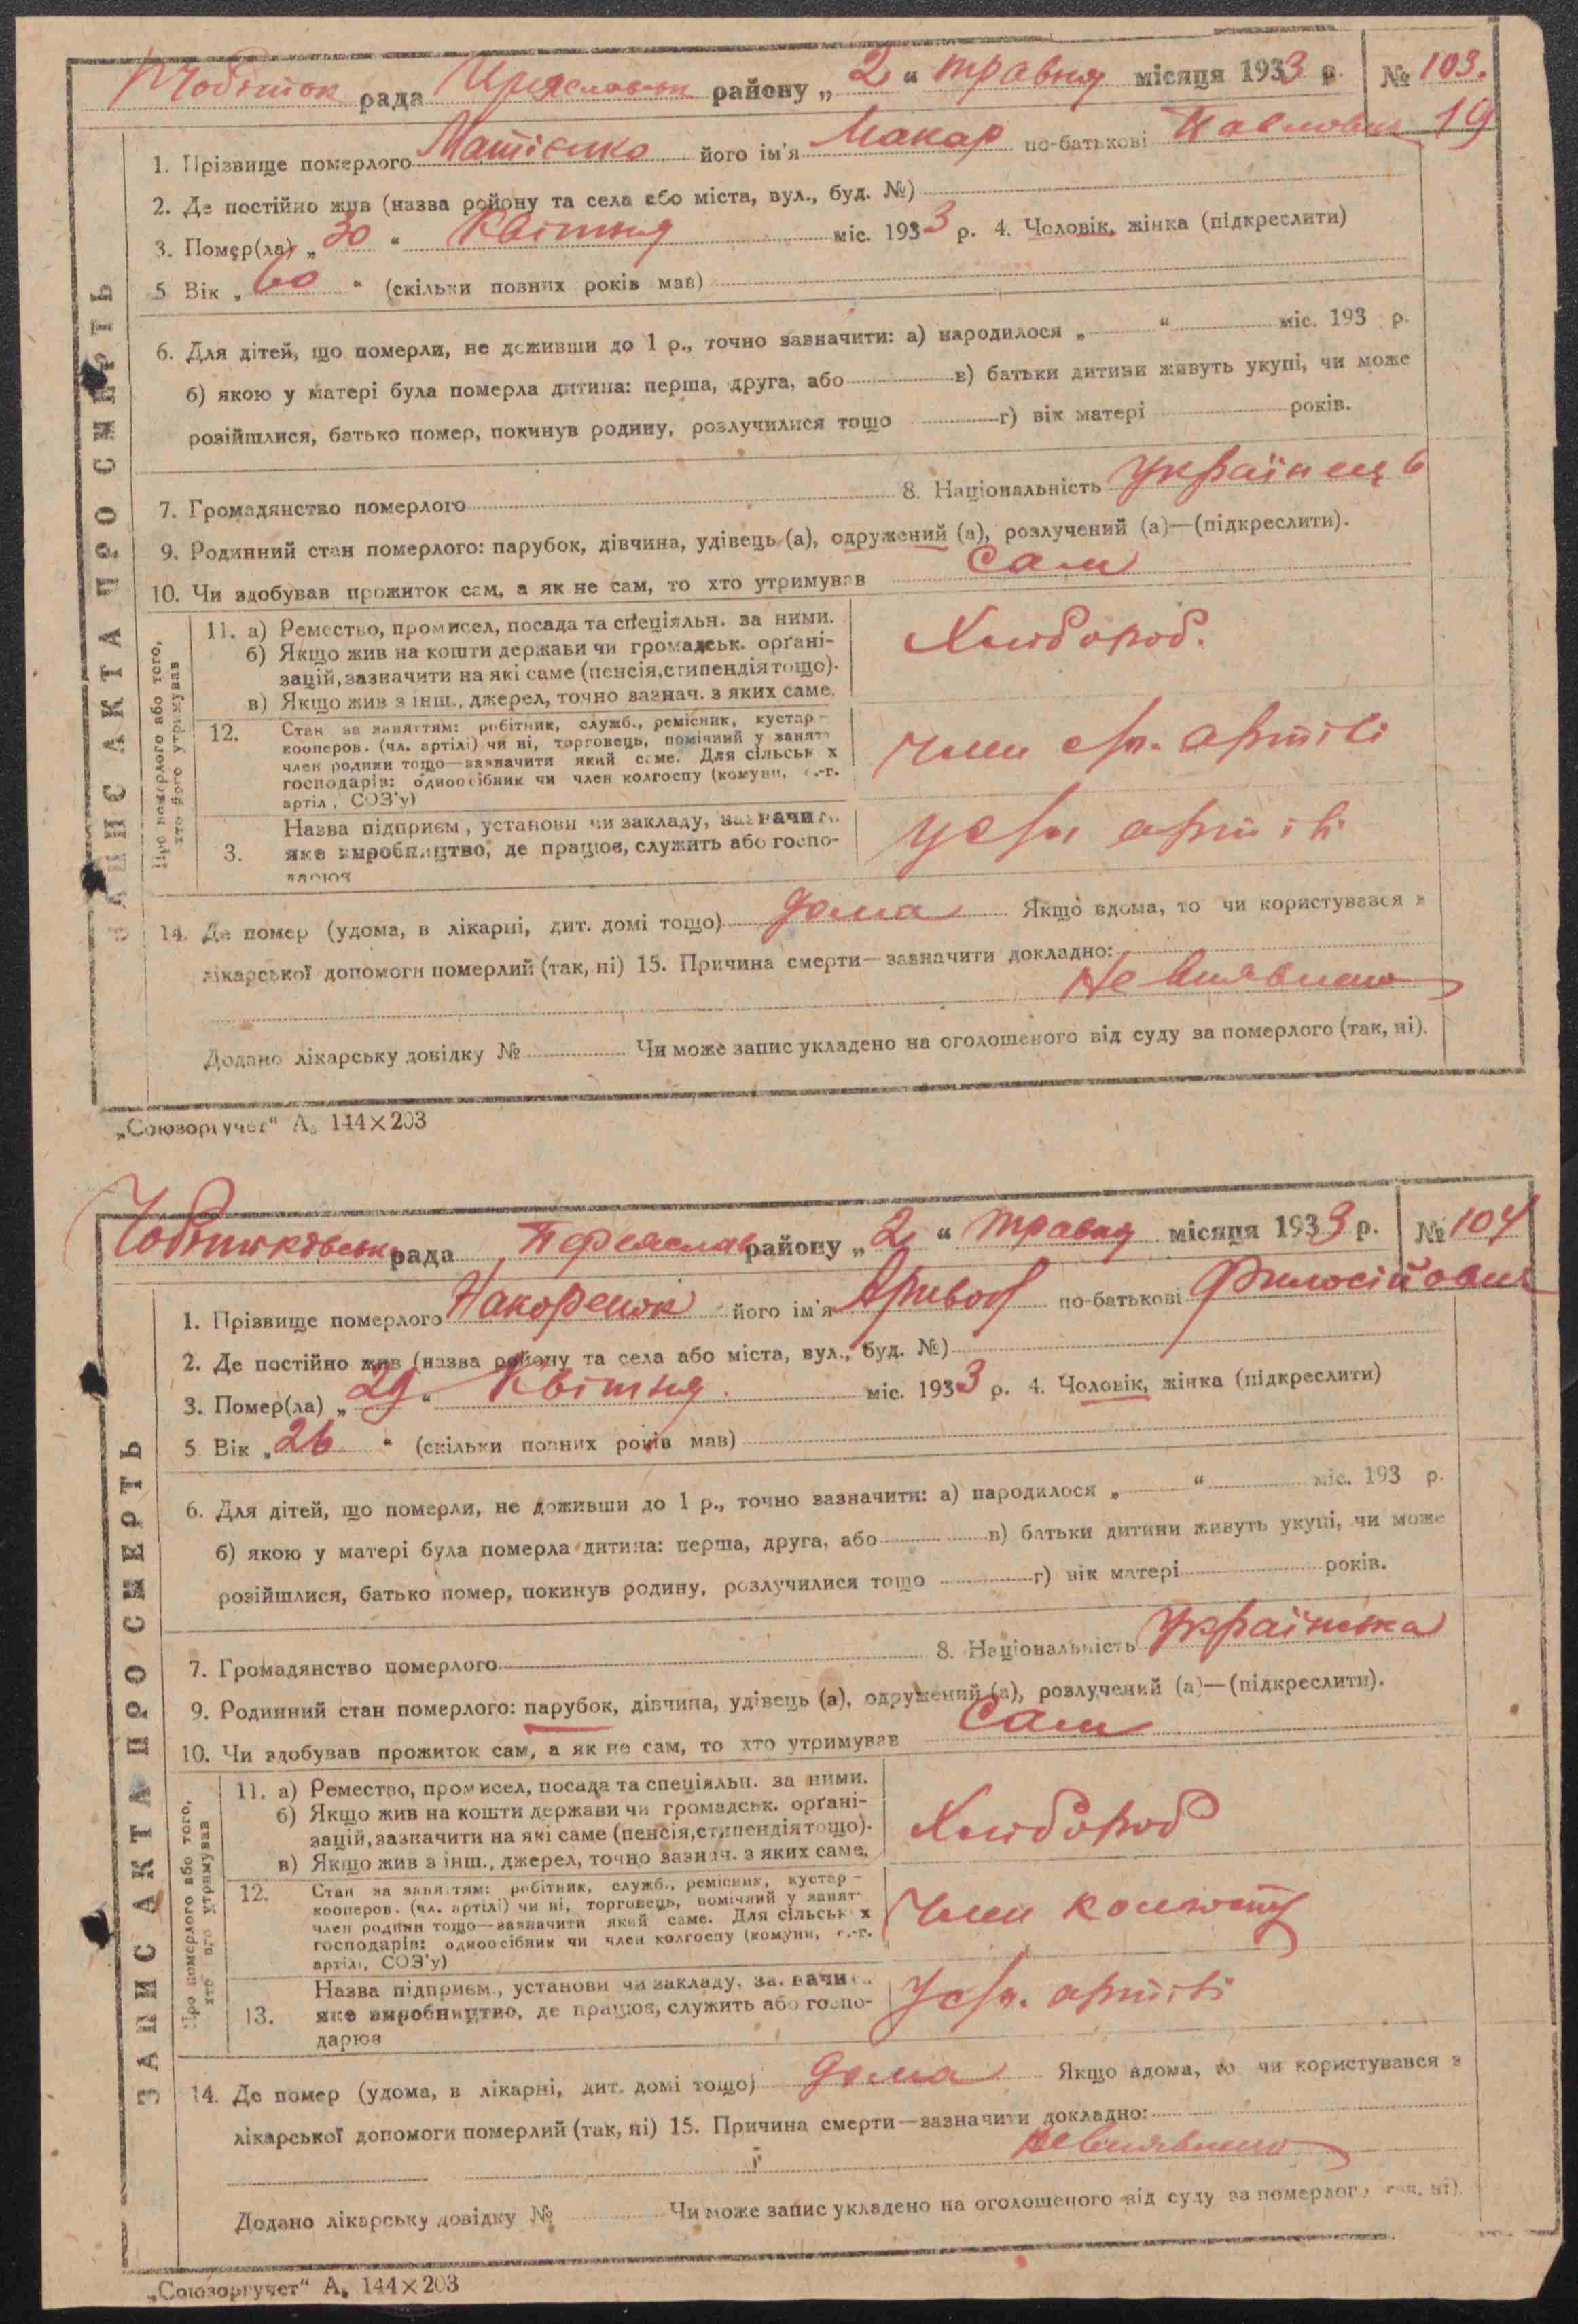 рада району „ 2 “ травня місяця 1933 р. № 103.
19
1. Прізвище померлого Матієнко його ім'я Макар по-батькові Павлович
2. Де постійно жив (назва району та села або міста, вул., буд. №)
3. Помер(ла) „ 30 “ Квітня міс. 1933 р. 4. Чоловік, жінка (підкреслити)
5 Вік „ 60 “ (скільки повних років мав)
6. Для дітей, що померли, не доживши до 1 р., точно зазначити: а) народилося „ “ міс. 193 р.
б) якою у матері була померла дитина: перша, друга, або в) батьки дитини живуть укупі, чи може
розійшлися, батько помер, покинув родину, розлучилися тощо г) вік матері років.
7. Громадянство померлого 8. Національність Українець
9. Родинний стан померлого: парубок, дівчина, удівець (а), одружений (а), розлучений (а)—(підкреслити).
10. Чи здобував прожиток сам, а як не сам, то хто утримував Сам
11. а) Ремество, промисел, посада та спеціяльн. за ними.
б) Якщо жив на кошти держави чи громадськ. орґані-
зацій, зазначити на які саме (пенсія, стипендія тощо).
в) Якщо жив з інш., джерел, точно зазнач. з яких саме.
Хлібороб.
12. Стан за заняттям: робітник, служб., ремісник, кустар -
кооперов. (чл. артілі) чи ні, торговець, помічний у занят
член родини тощо—зазначити який саме. Для сільськ х
господарів: одноосібник чи член колгоспу (комуни, с.-г.
артіл, СОЗ'у)
член с/г. артілі
3. Назва підприєм, установи чи закладу, зазначити
яке виробництво, де працює, служить або госпо-
дарює
у с/г артілі
Про померлого або того, хто його утримував
ЗАПИС АКТА ПРО СМЕРТЬ
14. Де помер (удома, в лікарні, дит. домі тощо) дома Якщо вдома, то чи користувався з
лікарської допомоги померлий (так, ні) 15. Причина смерти—зазначити докладно:
Не виявлено
Додано лікарську довідку № Чи може запис укладено на оголошеного від суду за померлого (так, ні).
„Союзоргучет“ А₅ 144×203
рада Переяслав району „ 2 “ травня місяця 1933 р. № 104
1. Прізвище померлого його ім'я по-батькові
2. Де постійно жив (назва району та села або міста, вул., буд. №)
3. Помер(ла) „ 29 “ Квітня міс. 1933 р. 4. Чоловік, жінка (підкреслити)
5 Вік „ 26 “ (скільки повних років мав)
6. Для дітей, що померли, не доживши до 1 р., точно зазначити: а) народилося „ “ міс. 193 р.
б) якою у матері була померла дитина: перша, друга, або в) батьки дитини живуть укупі, чи може
розійшлися, батько помер, покинув родину, розлучилися тощо г) вік матері років.
7. Громадянство померлого 8. Національність Українка
9. Родинний стан померлого: парубок, дівчина, удівець (а), одружений (а), розлучений (а)—(підкреслити).
10. Чи здобував прожиток сам, а як не сам, то хто утримував Сам
11. а) Ремество, промисел, посада та спеціяльн. за ними.
б) Якщо жив на кошти держави чи громадськ. орґані-
зацій, зазначити на які саме (пенсія, стипендія тощо).
в) Якщо жив з інш., джерел, точно зазнач. з яких саме.
Хлібороб
12. Стан за заняттям: робітник, служб., ремісник, кустар -
кооперов. (чл. артілі) чи ні, торговець, помічний у занят
член родини тощо—зазначити який саме. Для сільськ х
господарів: одноосібник чи член колгоспу (комуни, с.-г.
артілі, СОЗ'у)
член
13. Назва підприєм., установи чи закладу, зазначити
яке виробництво, де працює, служить або госпо-
дарює
У с/г. артілі
Про померлого або того, хто його утримував
ЗАПИС АКТА ПРО СМЕРТЬ
14. Де помер (удома, в лікарні, дит. домі тощо) дома Якщо вдома, то чи користувався з
лікарської допомоги померлий (так, ні) 15. Причина смерти—зазначити докладно:
не виявлено
Додано лікарську довідку № Чи може запис укладено на оголошеного від суду за померлого (так, ні)
„Союзоргучет“ А₅ 144×203